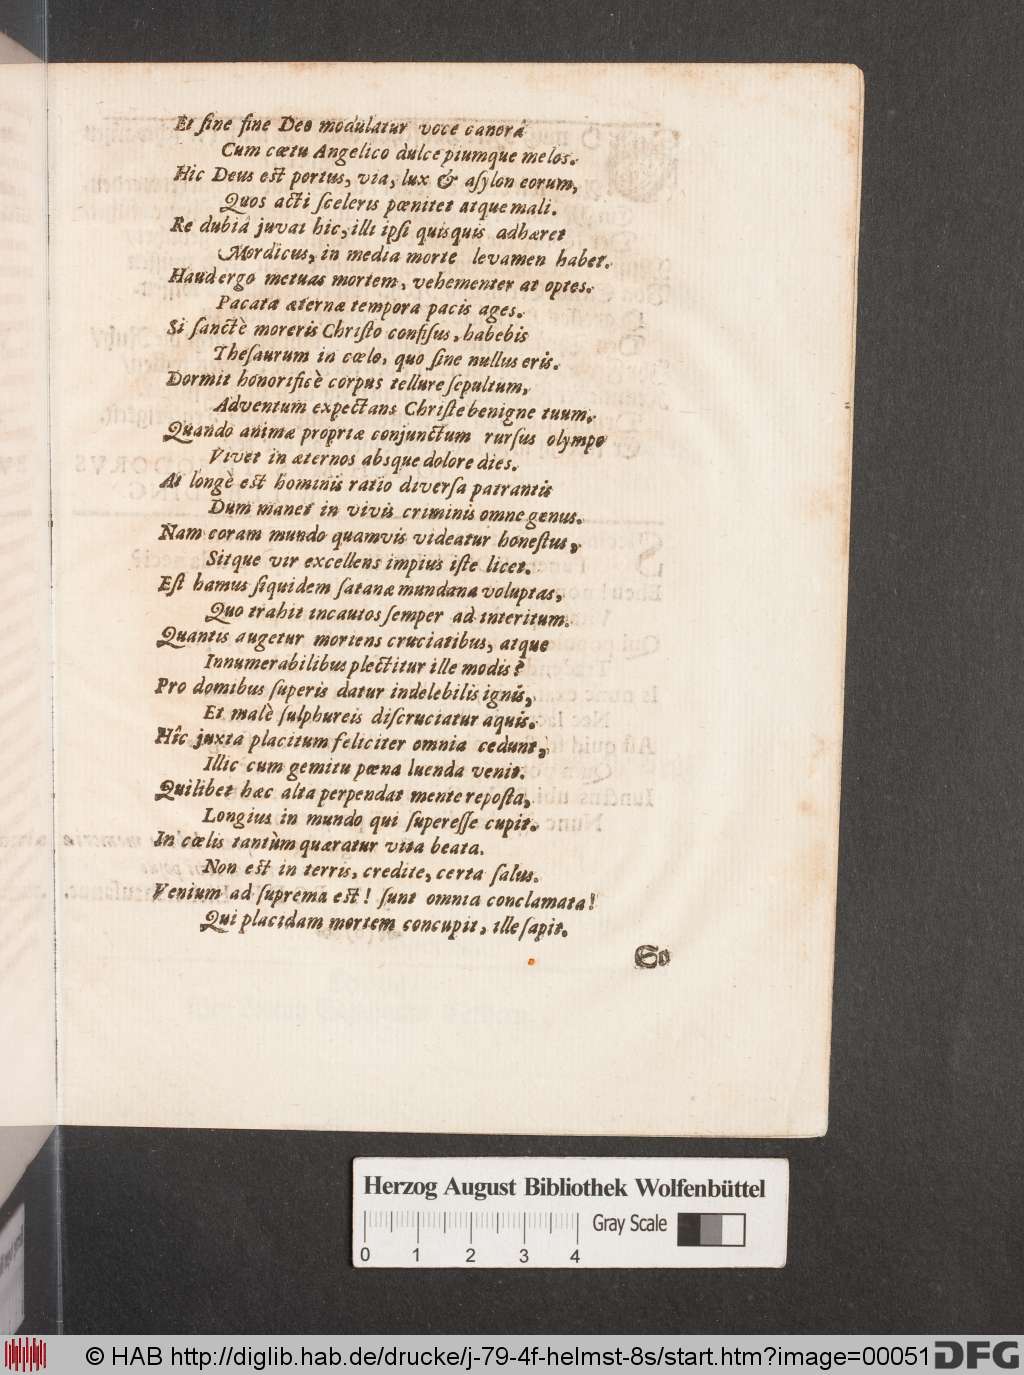 Et ſine fine Deo modulatur voce canorâ
Cum cœtu Angelico dulce piumque melos.
Hic Deus est portus, via, lux & aſylon eorum,
Quos acti ſceleris pœnitet atque mali.
Re dubiâ juvat hic, illi ipſi quisquis adhæret
Mordicus, in media morte levamen habet.
Haud ergo metuas mortem, vehementer at optes.
Pacata æternæ tempora pacis ages.
Si ſanctè moreris Chriſto confiſus, habebis
Theſaurum in cœlo, quo ſine nullus eris.
Dormit honorificè corpus tellure ſepultum,
Adventum expectans Chriſte benigne tuum.
Quando animæ propriæ conjunctum rurſus olympo
Vivet in æternos absque dolore dies.
At longè est hominis ratio diverſa patrantis
Dum manet in vivis criminis omne genus.
Nam coram mundo quamvis videatur honeſtus,
Sitque vir excellens impius iſte licet.
Eſt hamus ſiquidem ſatanæ mundana voluptas,
Quo trahit incautos ſemper ad interitum.
Quantis augetur moriens cruciatibus, atque
Innumerabilibus plectitur ille modis?
Pro domibus ſuperis datur indelebilis ignis,
Et malè ſulphureis diſcruciatur aquis.
Hîc juxta placitum feliciter omnia cedunt,
Illic cum gemitu pœna luenda venit.
Quilibet hæc alta perpendat mente repoſta,
Longius in mundo qui ſupereſſe cupit.
In cœlis tantùm quæratur vita beata.
Non est in terris, credite, certa ſalus.
Venium ad ſuprema est! ſunt omnia conclamata!
Qui placidam mortem concupit, ille ſapit.
So
Herzog August Bibliothek Wolfenbüttel
Gray Scale
0 1 2 3 4
© HAB http://diglib.hab.de/drucke/j-79-4f-helmst-8s/start.htm?image=00051
DFG